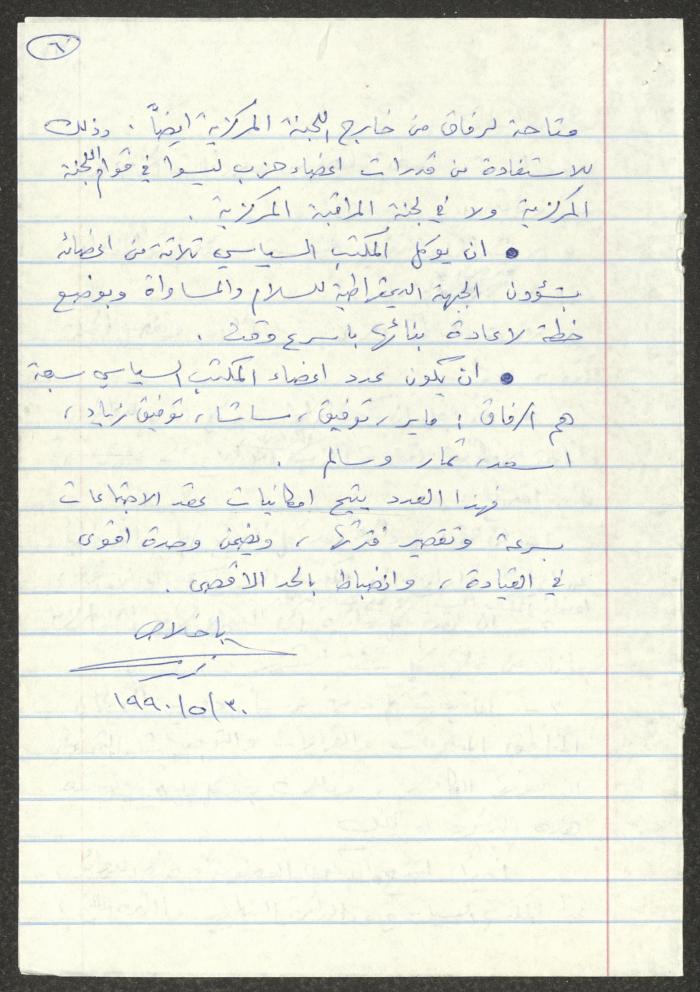 ٦
متاحة لرفاق من خارج اللجنة المركزية ايضاً. وذلك
للاستفادة من قدرات اعضاء حزب ليسوا في قوام اللجنة
المركزية ولا في لجنة المراقبة المركزية.
● ان يوكل المكتب السياسي ثلاثة من اعضائه
بشؤون الجبهة الديمقراطية للسلام والمساواة وبوضع
خطة لاعادة بنائها باسرع وقت.
● ان يكون عدد اعضاء المكتب السياسي سبعة
هم الرفاق: ماير، توفيق، ساشا، توفيق زياد،
اسعد، تمار وسالم.
فهذا العدد يتيح امكانيات عقد الاجتماعات
بسرعة وتقصير فترتها، ويضمن وحدة اقوى
في القيادة، وانضباط بالحد الاقصى.
باخلاص
١٩٩٠/٥/٣٠